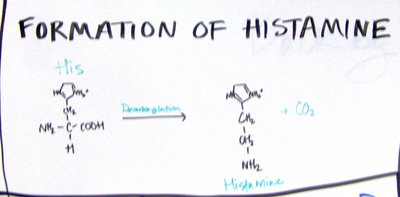 FORMATION OF HISTAMINE
His
CH2
NH2 - C - COOH
H
Decarboxylation
CH2
CH2
NH2
Histamine
+ CO2